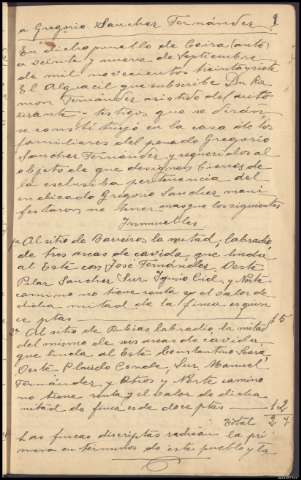 a Gregorio Sanchez Fernández 9
En dicho pueblo de Ceira (antº)
a veinte y nueve de Septiembre
de mil novecientos treinta y siete
El Alguacil que subscribe Dn Ra
mon Fernández asistido del actu
testigos que se dirán
se constituyó en la casa de los
familiares del penado Gregorio
Sanchez Fernández y requeridos al
objeto de que designen bienes de
la exclusiva pertinencia del
Gregorio Sanchez mani
festaron no tener mas que los siguientes
Inmuebles
1ª Al sitio de la mitad, labradio
de tres areas de cavida, que linda
al Este con José Fernández, Oeste
Pilar Sanchez, Sur y Norte
camino no tiene renta y el valor de
dicha mitad de la finca es quin
ce ptas 15
2ª Al sitio de Rubias labradio la mitad
del mismo de seis areas de cavida
que linda al Este Constantino
Oeste Placido Conde, Sur Manuel
Fernández y Otros y Norte camino
no tiene renta y el valor de dicha
mitad de finca es de doce ptas 12
Total 27
Las fincas descriptas radican la pri
mera en terminos de este pueblo y la